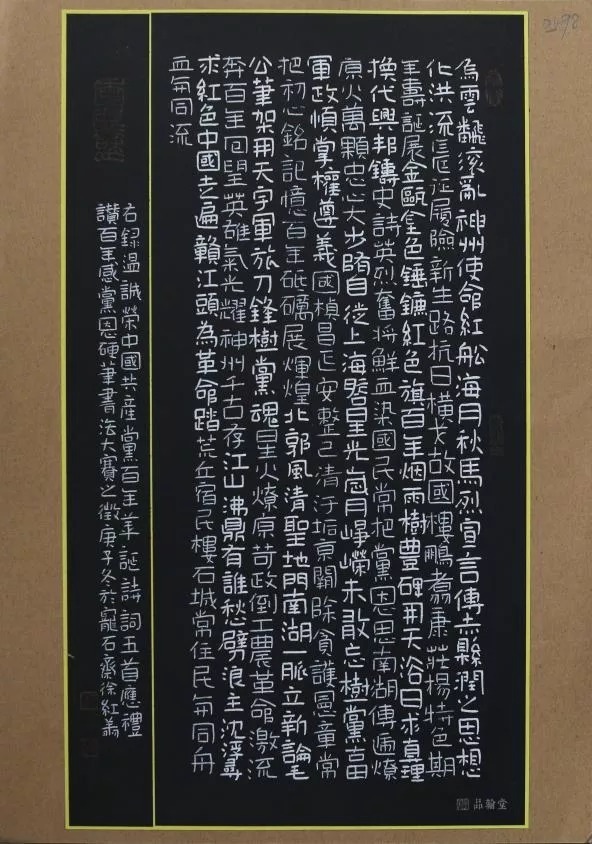 烏雲飜滚亂神州使命紅船海月秋馬烈宣言傳赤縣潤之思想
化洪流長征履險新生路抗日橫戈故國樓鵬翥康莊楊特色期
壽誕展金甌金色錘鐮紅色旗百年烟雨樹豐碑開天浴日求真理
換代興邦鑄史詩英烈奮將鮮血染國民常把黨恩思南湖傳遍燎
原火萬顆忠心大步随自從上海啓星光歲月崢嶸未敢忘樹黨富
軍政慎掌權遵義國楨昌正安整己清汙垢京關除貪護憲章常
把初心銘記憶百年砥礪展煇煌北郭風清聖地門南湖一脈立新論毛
公筆架開天字軍旅刀鋒樹黨魂星火燎原苛政倒工農革命激流
奔百年回望英雄氣光耀神州千古存江山沸鼎有誰愁劈浪主沈浮尋
求紅色中國走遍贛江頭為革命踏荒丘宿民樓石城常住民每同舟
血每同流
右録温誠榮中國共産黨百年華誕詩詞五首應禮
讚百年感黨恩硬筆書法大賽之徵庚子冬於寵石齋徐紅
品翰堂